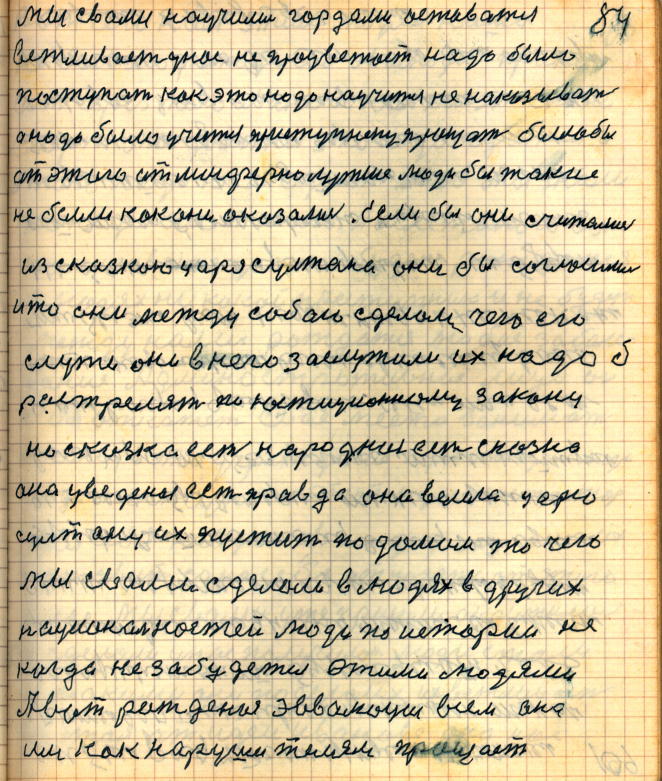 мы свами научили гордами оставатя 84
ветливаетдное не процветает надо было
поступат как это надо научитя не наказыват
а надо было учитя приступнену прощат было бы
от этого отлинферно лутше люди бы такие
не были как они оказали. Если бы они считали
из сказкою царя султана они бы согласили
што они между собою сделом чего его
слуги они в него заслужили их надо б
растрелят по юстиционному закону
но сказка ест народны ест сказка
она уведены ест правда она велела царю
султану их пустит по домом то чего
мы свами сделом в людях в других
националностей люди по истории не
когда не забудетя этими людями
А вот рождения эввакоции всем она
им как нарушителям прощает